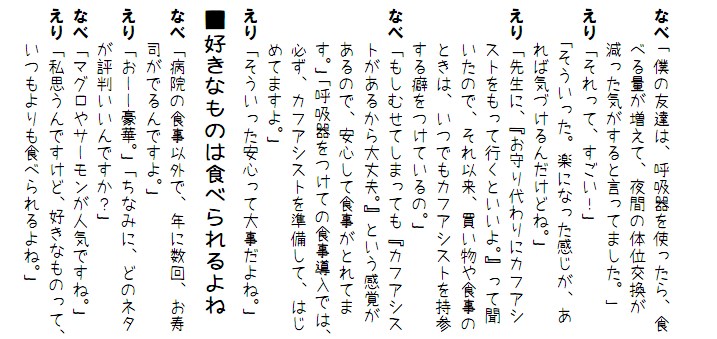 なべ「僕の友達は、呼吸器を使ったら、食
べる量が増えて、夜間の体位交換が
減った気がすると言ってました。」
えり「それって、すごい！」
「そういった。楽になった感じが、あ
れば気づけるんだけどね。」
えり「先生に、『お守り代わりにカフアシ
ストをもって行くといいよ。』って聞
いたので、それ以来、買い物や食事の
ときは、いつでもカフアシストを持参
する癖をつけているの。」
なべ「もしむせてしまっても『カフアシス
トがあるから大丈夫。』という感覚が
あるので、安心して食事がとれてま
す。」「呼吸器をつけての食事導入では、
必ず、カフアシストを準備して、はじ
めてますよ。」
えり「そういった安心って大事だよね。」
■好きなものは食べられるよね
なべ「病院の食事以外で、年に数回、お寿
司がでるんですよ。」
えり「おーー豪華。」「ちなみに、どのネタ
が評判いいんですか？」
なべ「マグロやサーモンが人気ですね。」
えり「私思うんですけど、好きなものって、
いつもよりも食べられるよね。」